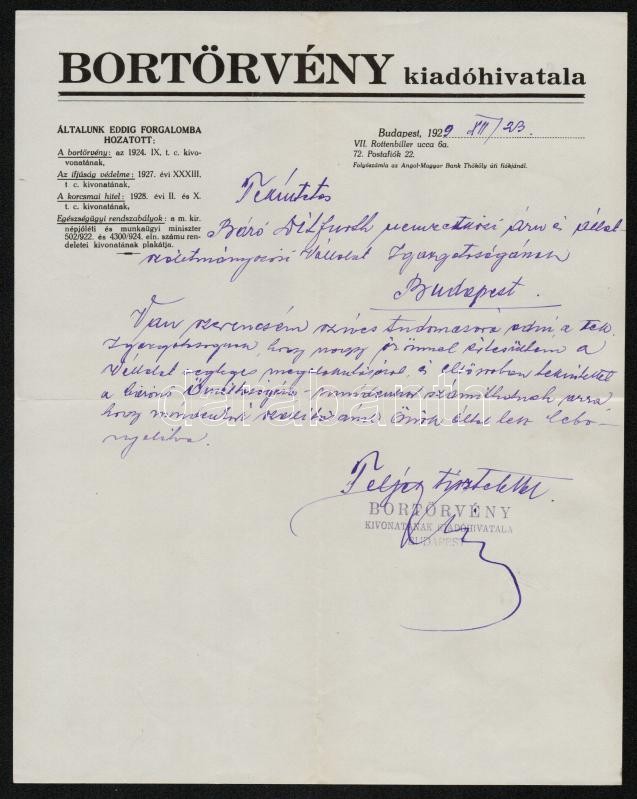 BORTÖRVÉNY kiadóhivatala
ÁLTALUNK EDDIG FORGALOMBA
HOZATOTT:
A bortörvény: az 1924. IX. t. c. kivo-
vonatának,
Az ifjúság védelme: 1927. évi XXXIII.
t. c. kivonatának,
A korcsmai hitel: 1928. évi II. és X.
t. c. kivonatának,
Egészségügyi rendszabályok: a m. kir.
népjóléti és munkaügyi miniszter
502/922. és 4300/924. eln. számu ren-
deletei kivonatának plakátja.
Budapest, 1929 XII/23.
VII. Rottenbiller ucca 6a.
72. Postafiók 22.
Folyószámla az Angol-Magyar Bank Thököly úti fiókjánál.
Tekintetes
Báró Ditfurth nemzetközi áru és
szállítmányozási Vállalat Igazgatóságának
Budapest.
Van szerencsém szíves tudomására adni a tek.
Igazgatóságnak, hogy nagy örömmel értesültem a
Vállalat végleges megalakulásáról, és elsősorban tekintettel
a báróné számíthatnak arra
hogy által lesz lebo-
nyolítva.
Teljes tisztelettel
BORTÖRVÉNY
KIVONATÁNAK KIADÓHIVATALA
BUDAPEST
darabanth